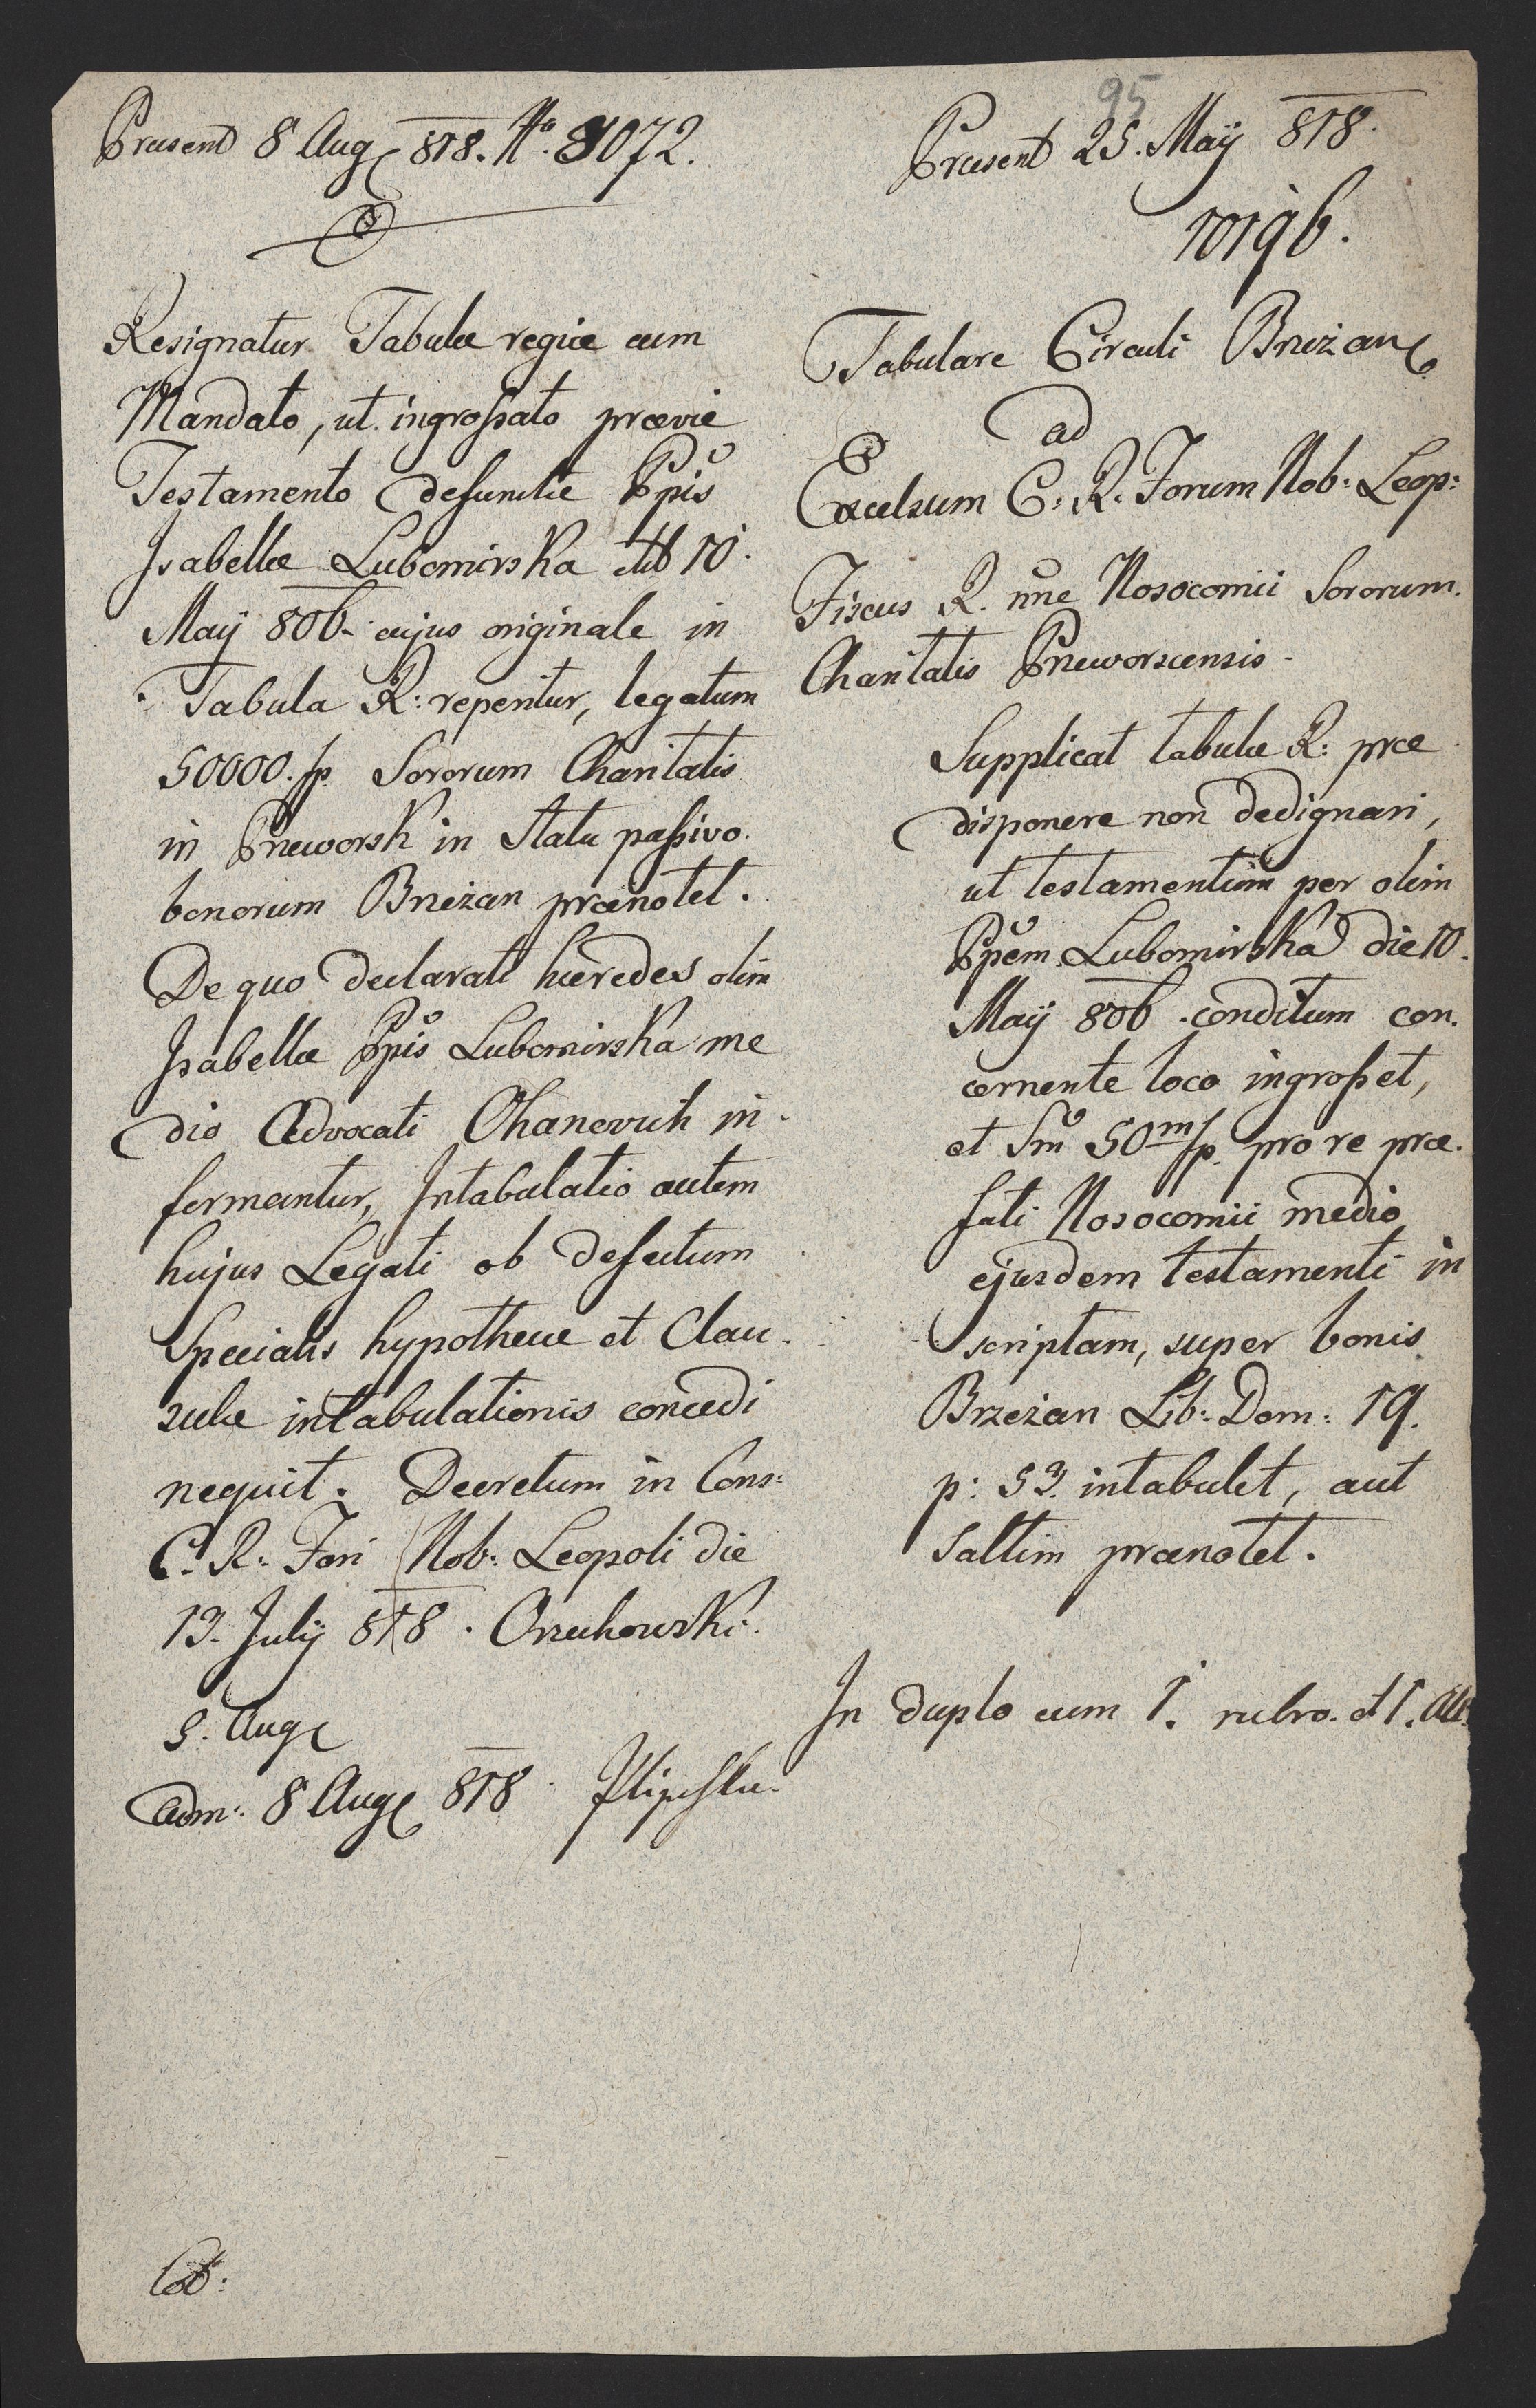 95
Præsent 8 Aug 818. No. 31072.
Resignatur Tabulæ regiæ cum
Mandato, ut ingrossato prævie
Testamento defunctæ Ppis
Isabellæ Lubomirska dtto 10.
May 806. cujus originale in
Tabula R: reperitur, legatum
50000. fp. Sororum Charitatis
in Przeworsk in Statu passivo
bonorum Brzeżan prænotet.
De quo declarati hæredes olim
Isabellæ Ppis Lubomirska me
dio Advocati Ohanovich in-
formantur, Intabulatio autem
hujus Legati ob defectum
Specialis hypothecæ et Clau-
sulæ intabulationis concedi
nequit. Decretum in Cons:
C. R. Fori Nob: Leopoli die
13. July 818. Orzechowski.
5. Aug
adm: 8 Aug 818.
Præsent 25. Maij 818.
10196.
Tabulare Circuli Brzeżan
ad
Excelsum C. R. Forum Nob: Leop:
Fiscus R. nne Nosocomii Sororum
Charitatis Przeworscensis.
Supplicat tabulæ R: præ
disponere non dedignari,
ut testamentum per olim
Ppem Lubomirska die 10.
Maij 806. conditum con-
cernente loco ingrosset,
et Sm 50m fp. pro re præ-
fati Nosocomii medio
ejusdem testamenti in
scriptam, super bonis
Brzeżan Lib: Dom: 19.
p: 53. intabulet, aut
Saltim prænotet.
In duplo cum 1. rubro. et 1. All.